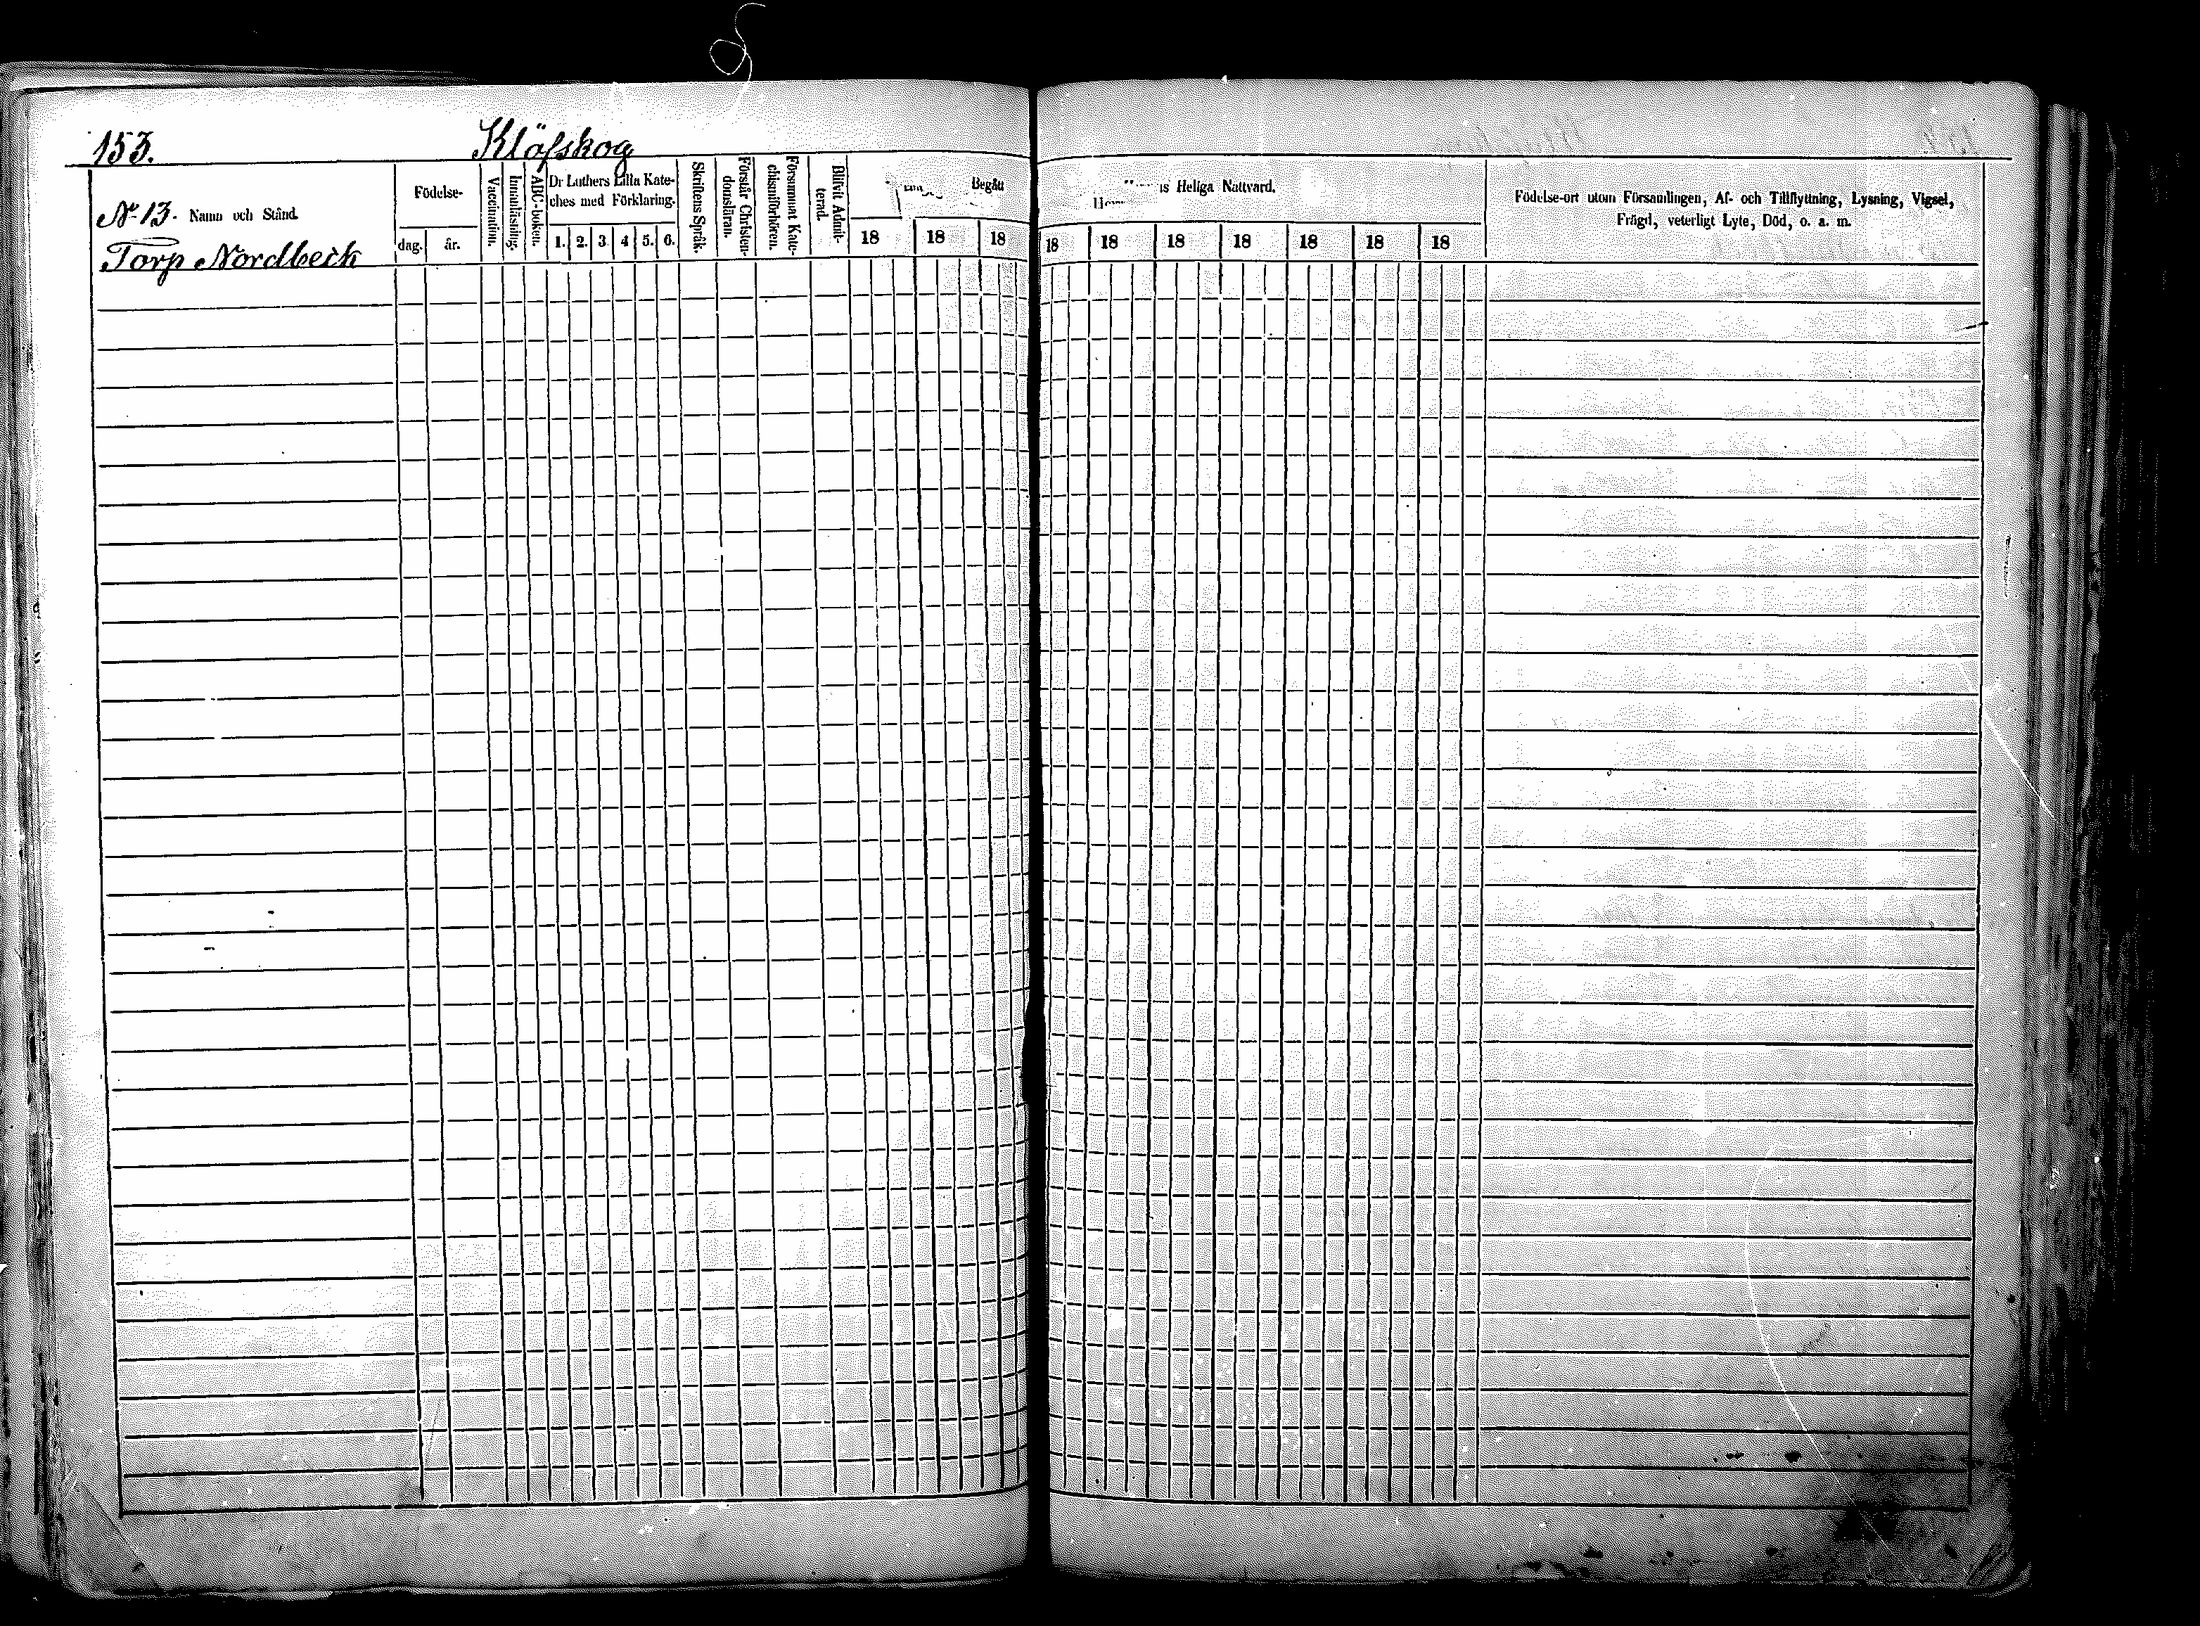 153.
Klöfskog
N. 13. Namn och Stånd.
Torp Nordbeck
Födelse-
dag. år.
Vaccination.
Innanläsning.
ABC-boken.
Dr Luthers Lilla Kate-
ches med Förklaring.
1. 2. 3. 4 5. 6.
Skriftens Språk.
Förstår Christen-
domsläran.
Försummat Kate-
chismiförhören.
Blifvit Admit-
terad.
Begått
18 18 18
Heliga Nattvard.
18 18 18 18 18 18 18
Födelse-ort utom Församlingen, Af- och Tillflyttning, Lysning, Vigsel,
Frägd, veterligt Lyte, Död, o. a. m.